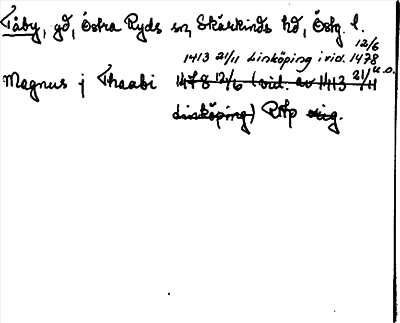 Tåby, gd, Östra Ryds sn, Skärkinds hd, Östg. l.
1413 21/11 Linköping i vid. 1478 12/6 u.o.
Magnus j Thaabi 1478 12/6 (vid. av 1413 21/11
Linköping) RAp orig.